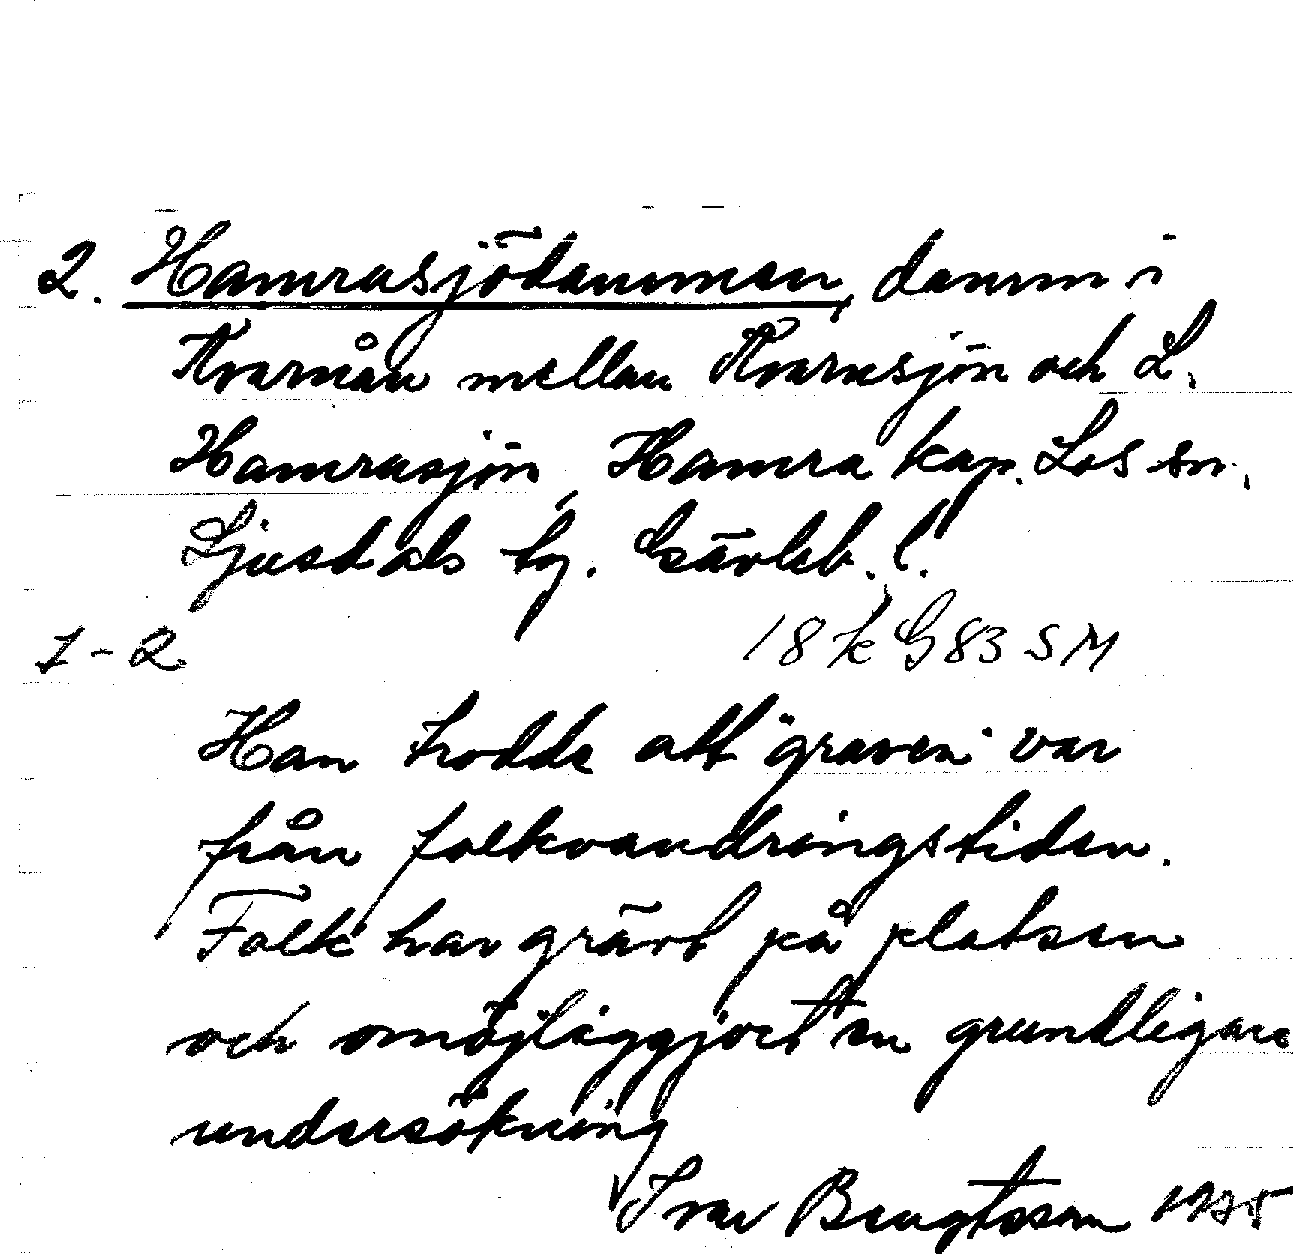 2. Hamrasjödammen, damm i
Kvarnån mellan Kvarnsjön och L.
Hamrasjön, Hamra kap. Los sn.,
Ljusdals tg. Gävleb. l.
1-2 18 k G 83 SM
Han trodde att "graven" var
från folkvandringstiden.
Folk har grävt på platsen
och omöjliggjort en grundligare
undersökning
Ivar Bengtsson 1975